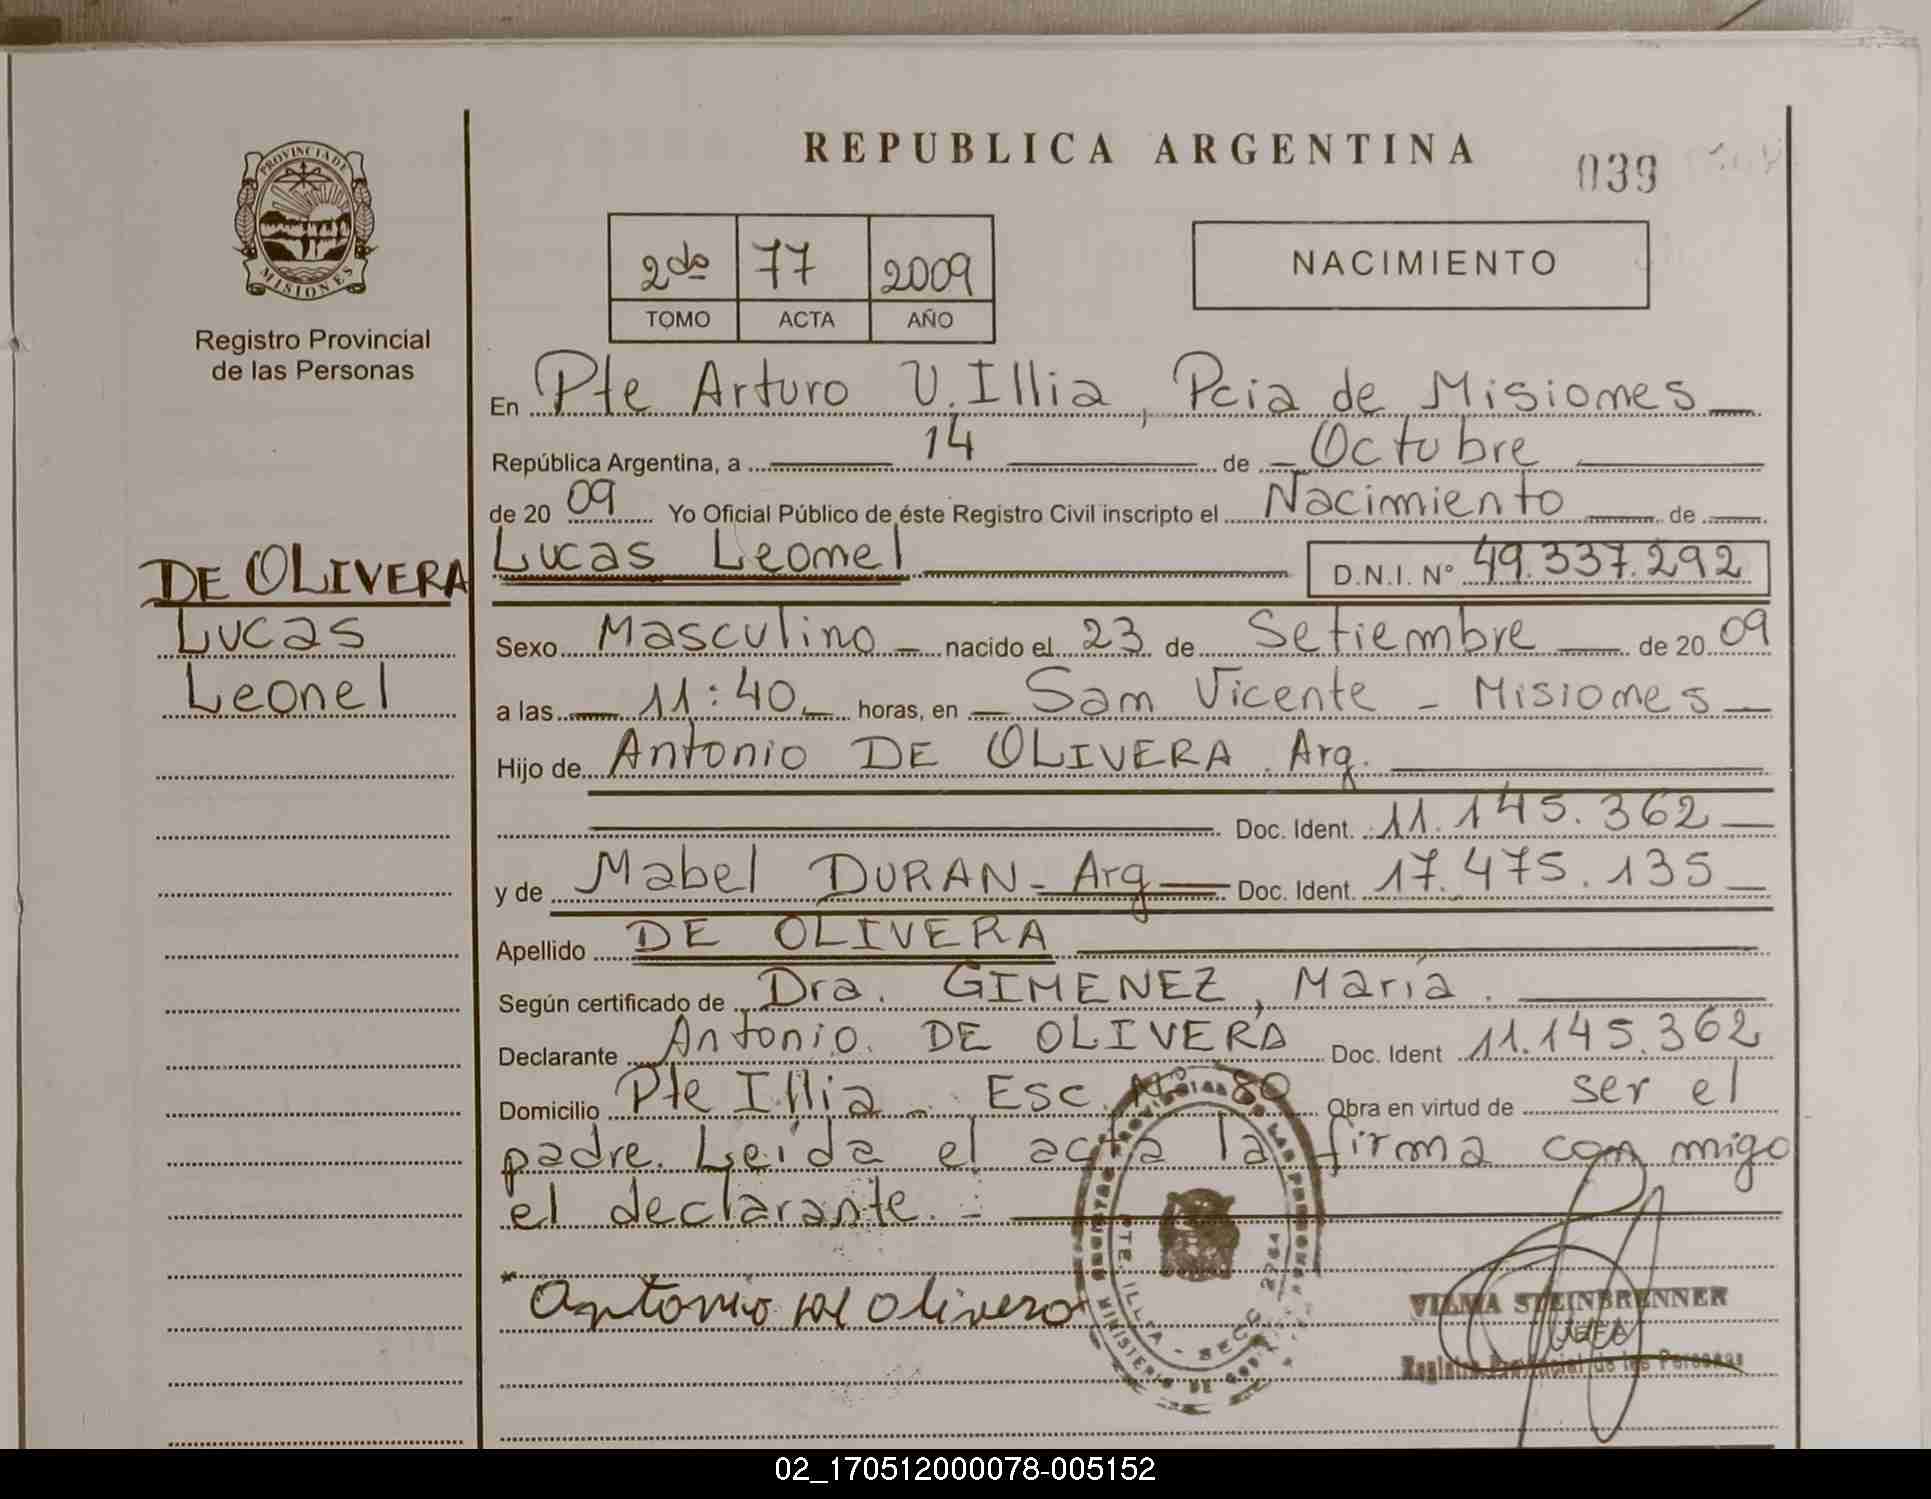 REPUBLICA ARGENTINA
039
PROVINCIA DE
MISIONES
Registro Provincial
de las Personas
2do 77 2009
TOMO ACTA AÑO
NACIMIENTO
En Pte Arturo U. Illia, Pcia de Misiones
República Argentina, a 14 de Octubre
de 2009 Yo Oficial Público de éste Registro Civil inscripto el Nacimiento de
Lucas Leonel D.N.I. N° 49.337.292
DE OLIVERA
Lucas
Leonel
Sexo Masculino nacido el 23 de Setiembre de 2009
a las 11:40 horas, en San Vicente - Misiones
Hijo de Antonio DE OLIVERA. Arg.
Doc. Ident. 11.145.362
y de Mabel DURAN - Arg Doc. Ident. 17.475.135
Apellido DE OLIVERA
Según certificado de Dra. GIMENEZ, María.
Declarante Antonio. DE OLIVERA Doc. Ident 11.145.362
Domicilio Pte Illia - Esc. Nº 80 Obra en virtud de ser el
padre. Leída el acta la firma con migo
el declarante. -
* Antonio de Olivera
MINISTERIO DE
PTE. ILLIA - SECC. 2264
VILMA STEINBRENNER
JEFA
Registro Provincial de las Personas
02_170512000078-005152